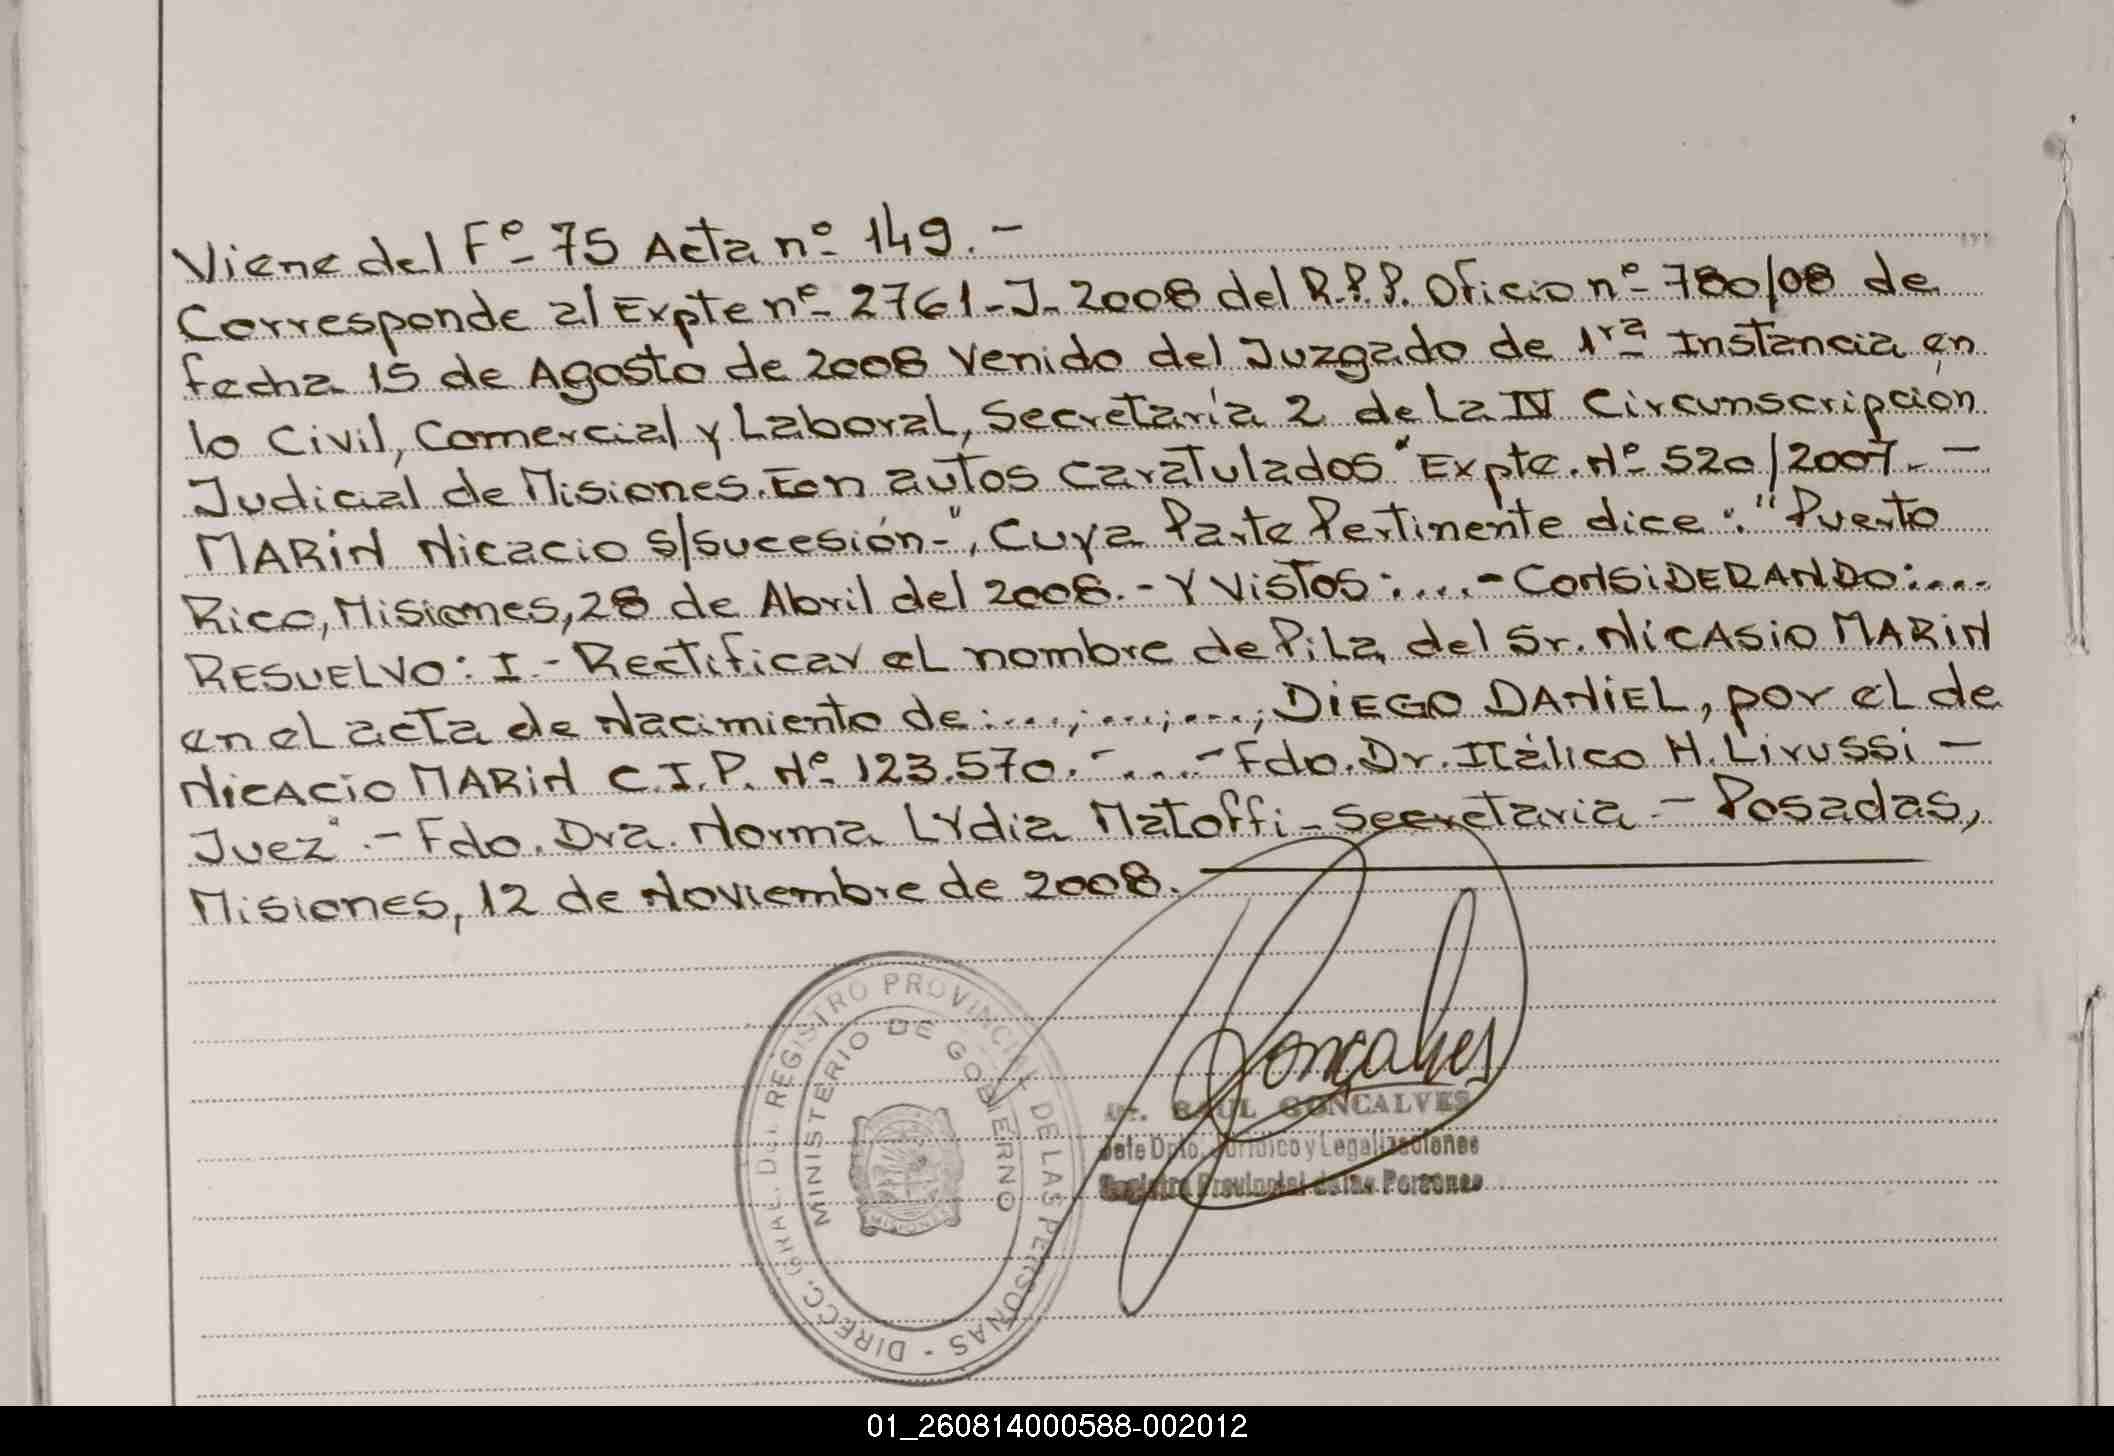 Viene del Fº 75 Acta nº 149.-
Corresponde al Expte nº 2761-J-2008 del R.P.P. Oficio nº 780/08 de
fecha 15 de Agosto de 2008 Venido del Juzgado de 1ra Instancia en
lo Civil, Comercial y Laboral, Secretaría 2 de La IV Circunscripción
Judicial de Misiones. En autos Caratulados "Expte. Nº 520/2007.-
MARIN Nicacio s/sucesión-", Cuya Parte Pertinente dice: "Puerto
Rico, Misiones, 28 de Abril del 2008.- Y Vistos:...-CONSIDERANDO:....
RESUELVO: I.- Rectificar el nombre de Pila del Sr. NICASIO MARIN
en el acta de Nacimiento de:....;....;....; DIEGO DANIEL, por el de
NICACIO MARIN C.I.P. Nº 123.570.-....- Fdo. Dr. Itálico H. Lirussi -
Juez".- Fdo. Dra. Norma Lydia Matoffi - Secretaria - Posadas,
Misiones, 12 de Noviembre de 2008.
DIRECC. GRAL. DEL REGISTRO PROVINCIAL DE LAS PERSONAS -
MINISTERIO DE GOBIERNO
MISIONES
Gonçalves
Dr. RAUL GONCALVES
Jefe Dpto. Jurídico y Legalizaciones
Registro Provincial de las Personas
01_260814000588-002012